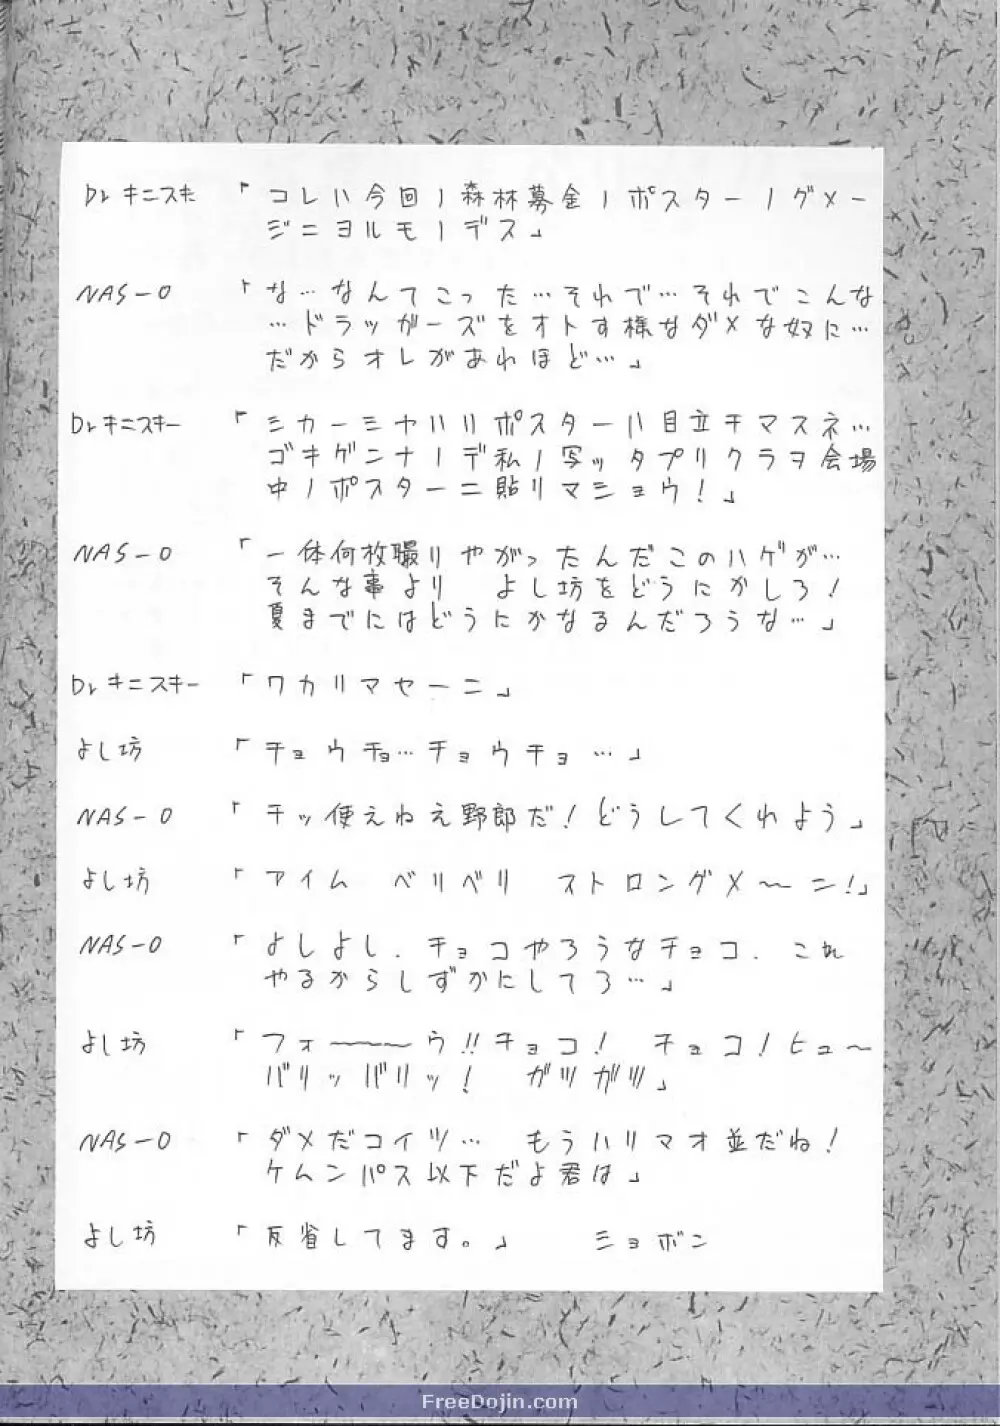 Dr キニスキ 「コレハ今回ノ森林募金ノポスターノダメー
ジニヨルモノデス」
NAS-O 「な…なんてこった…それで…それでこんな
…ドラッガーズをオトす様なダメな奴に…
だからオレがあれほど…」
Dr キニスキー 「シカーミヤハリポスターハ目立チマスネ…
ゴキゲンナノデ私ノ写ッタプリクラヲ会場
中ノポスターニ貼リマショウ!」
NAS-O 「一体何枚撮りやがったんだこのハゲが…
そんな事より よし坊をどうにかしろ!
夏までにはどうにかなるんだろうな…」
Dr キニスキー 「ワカリマセーニ」
よし坊 「チョウチョ…チョウチョ…」
NAS-O 「チッ使えねえ野郎だ!どうしてくれよう」
よし坊 「アイム ベリベリ ストロングメ〜ン!」
NAS-O 「よしよし.チョコやろうなチョコ. これ
やるからしずかにしてろ…」
よし坊 「フォ〜〜〜ウ!!チョコ! チョコ!ヒュ〜
バリッバリッ! ガツガツ」
NAS-O 「ダメだコイツ… もうハリマオ並だね!
ケムンパス以下だよ君は」
よし坊 「反省してます。」 ショボン
FreeDojin.com